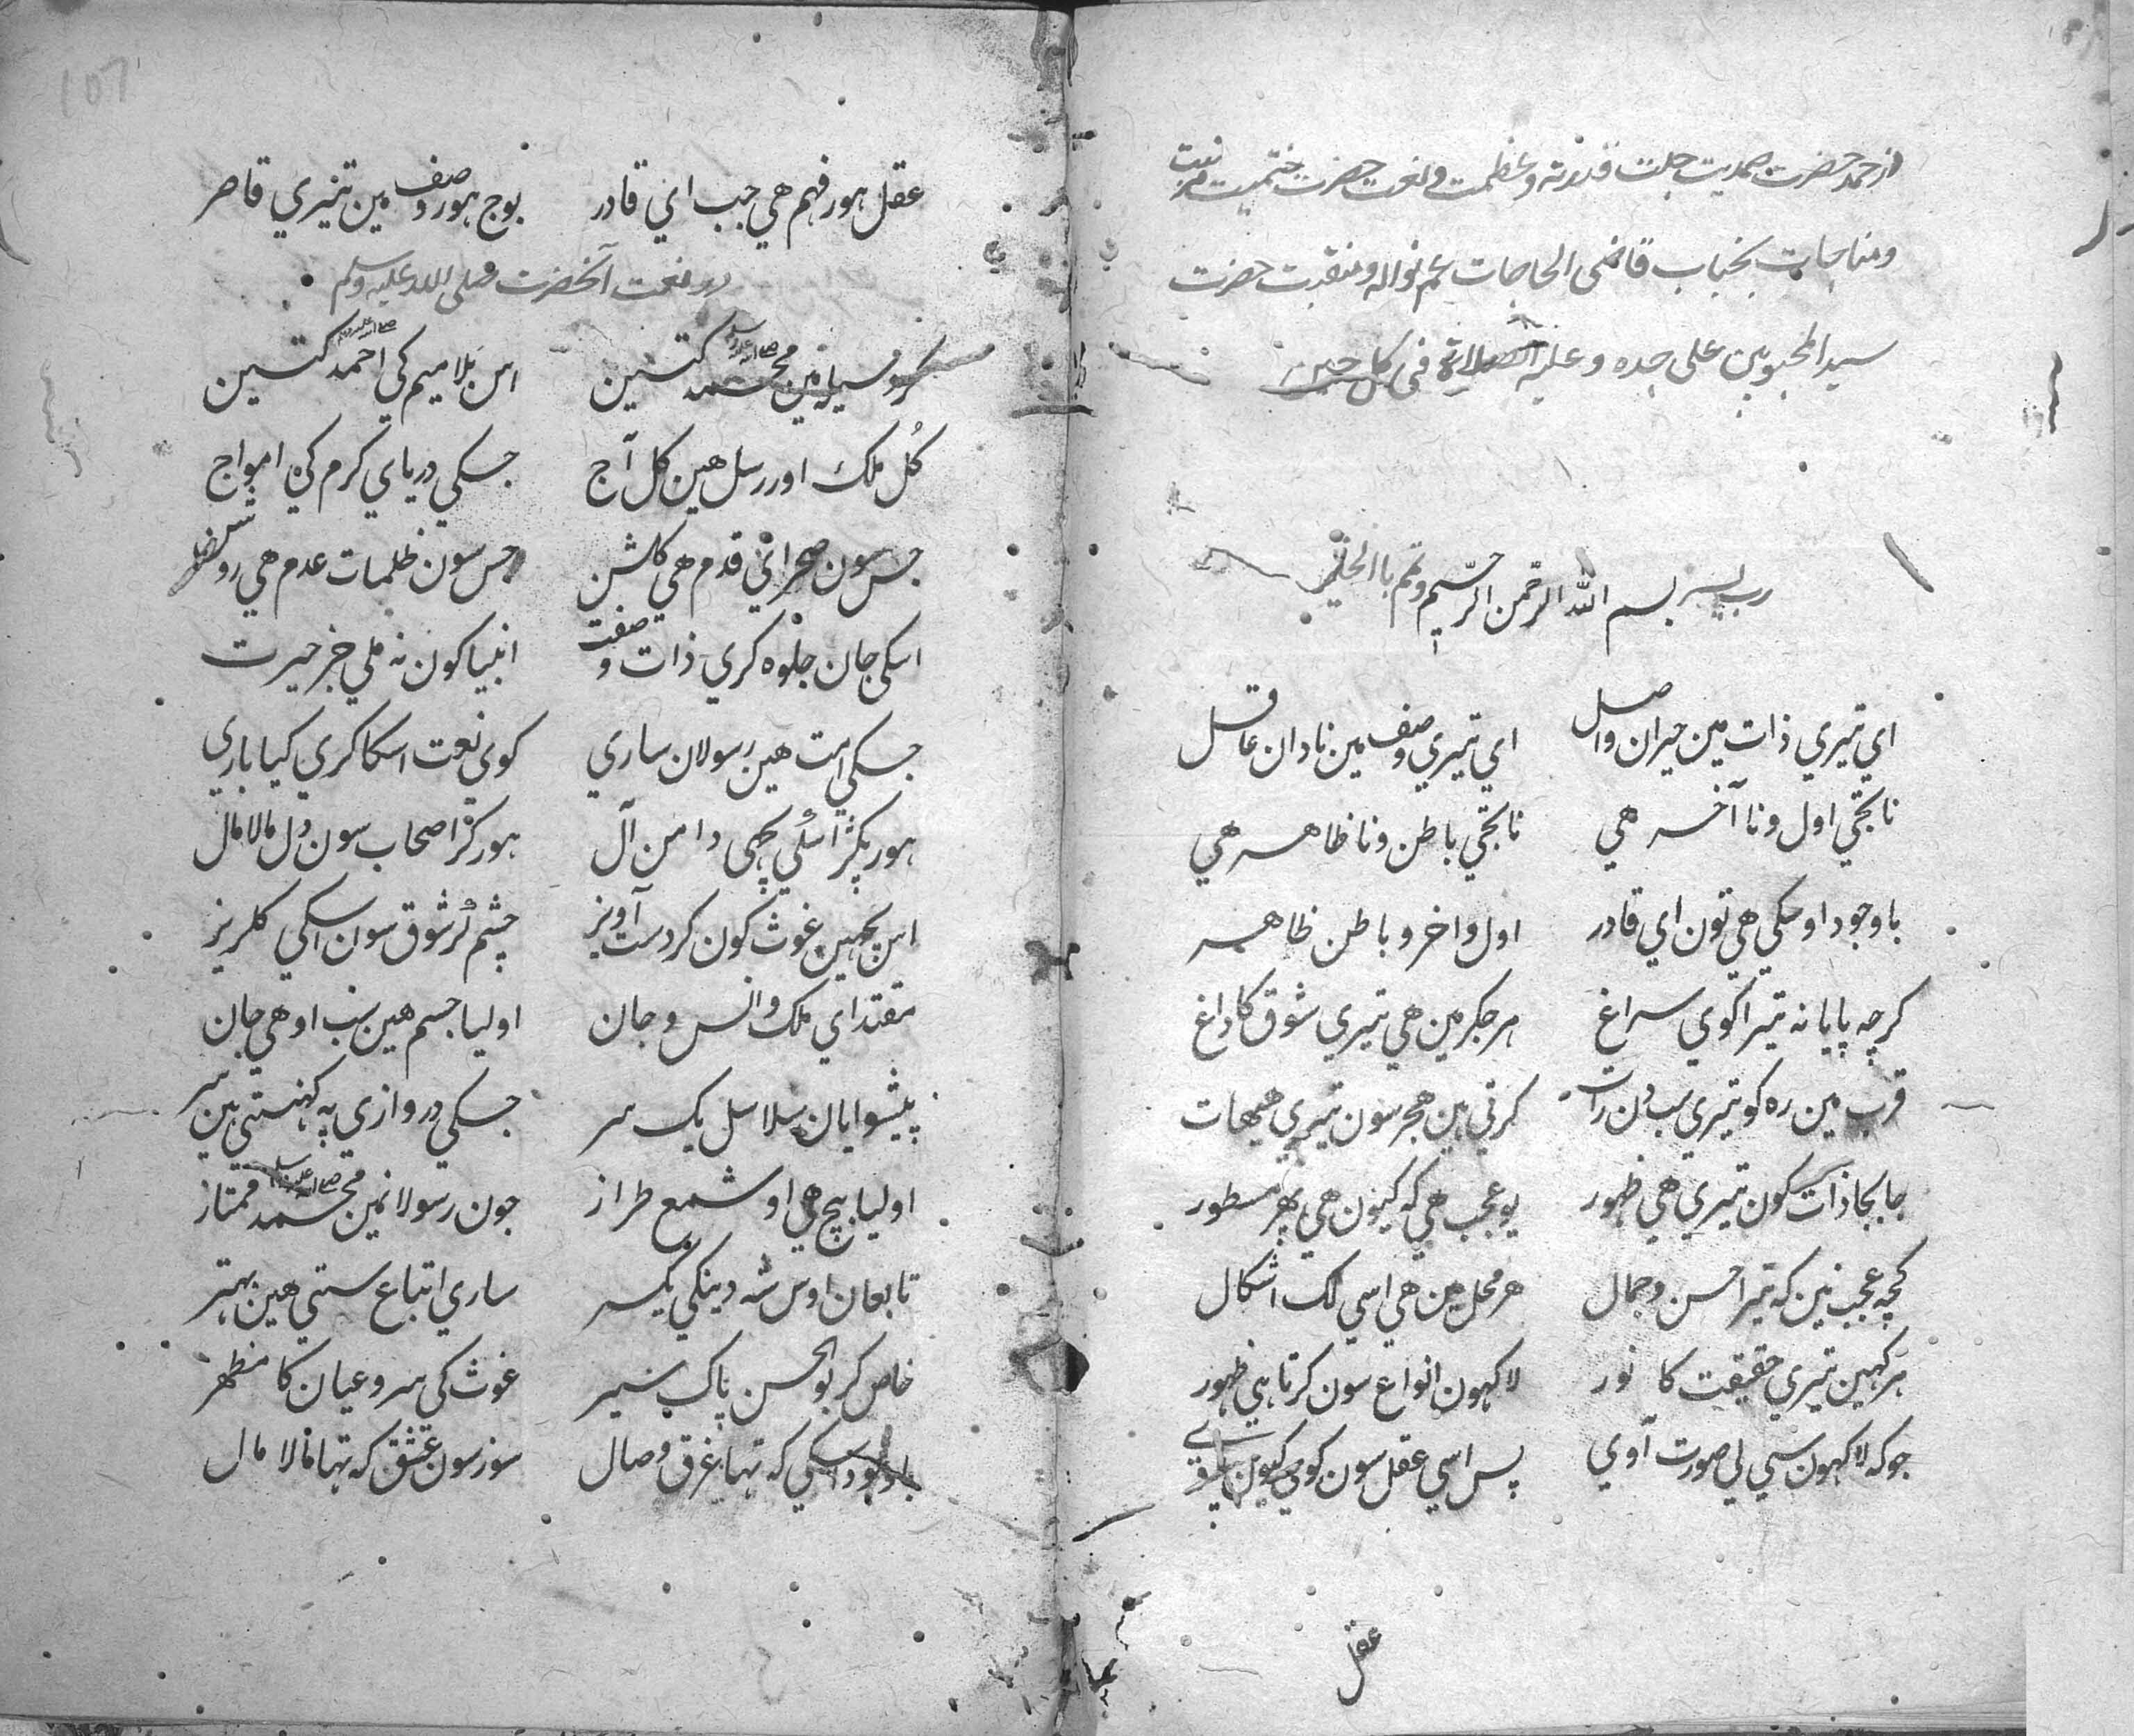 از حمد حضرت صمدیت جلت قدرته و عظمت و نعت حضرت ختمیت مرتبت
و مناجات بجناب قاضی الحاجات عم نواله و منقبت حضرت
سید المحبوبین علی جده و علیه الصلاة فی کل حین
رب یسر بسم الله الرحمن الرحیم و تمم باالخیر
اي تیري ذات مین حیران واصل اي تیري وصف مین نادان عاقل
نا تجي اول و نا آخر هي نا تجي باطن و نا ظاهر هي
با وجود اوسکي هي تون اي قادر اول و اخر و باطن ظاهر
کرچه پایا نه تیرا کوي سراغ هر جکر مین هي تیري شوق کا داغ
قرب مین ره کو تیري سب دن رات کرتي هین هجر سون تیري هیهات
جابجا ذات کون تیري هي ظهور یو عجب هي که کیون هي پهر مسطور
کچه عجب نین که تیرا حسن و جمال هر محل مین هي اسي لک اشکال
هر کهین تیري حقیقت کا نور لاکهون انواع سون کرتا هي ظهور
جو که لاکهون سي لي صورت آوي پس اسي عقل سون کوي کیون
عقل
107
عقل هور فهم هي جب اي قادر بوج هور وصف مین تیري قاصر
در نعت آنحضرت صلی الله علیه وسلم
محمد کتسین اس بلا میم کي احمد کتسین
کُل ملک اور رسل هین کل آج جسکي دریاي کرم کي امواج
جس سون صحراي قدم هي کلشن جس سون ظلمات عدم هي روشن
اسکي جان جلوه کري ذات و صفت انبیا کون نه ملي جز حیرت
جسکي امت هین رسولان ساري کوي نعت اسکا کري کیا باري
هور پکڑ اسکي پچهي دامن آل هور کر اصحاب سون دل مالامال
اس پچهین غوث کون کر دست آویز چشم کر شوق سون اسکي کلریز
مقتداي ملک و انس و جان اولیا جسم هین سب او هي جان
پیشوایان سلاسل یک سر جسکي دروازي په کهستي هین سر
اولیا بیچ هي او شمع طراز جون رسولان مین محمد ممتاز
تابعان اوس شه دینکي یکسر ساري اتباع ستي هین بهتر
خاص کر بو الحسن پاک سیر غوث کي سر و عیان کا مظهر
باوجود اسکي که تها غرق وصال سوز سون عشق که تها مالا مال